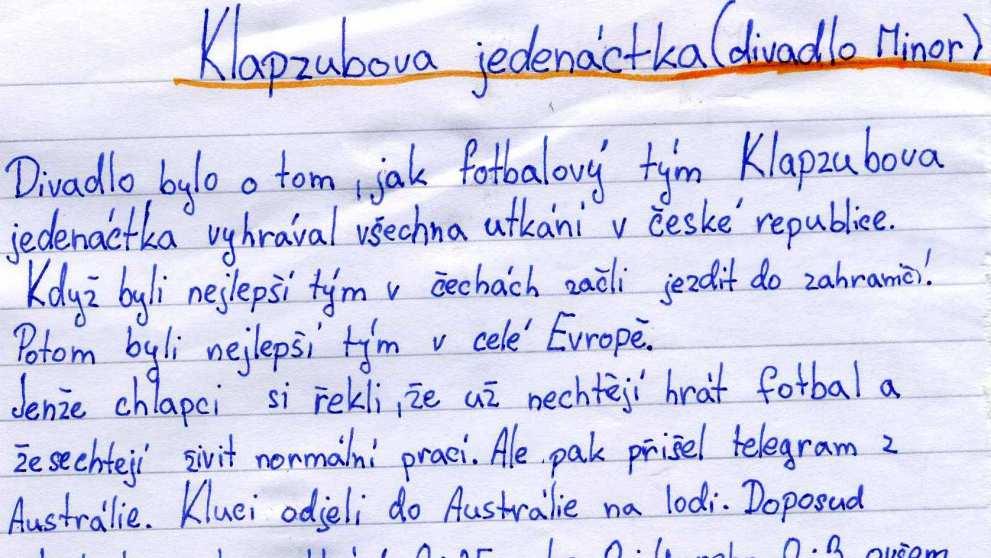 Klapzubova jedenáctka (divadlo Minor)
Divadlo bylo o tom, jak fotbalový tým Klapzubova
jedenáctka vyhrával všechna utkání v české republice.
Když byli nejlepší tým v čechách začli jezdit do zahraničí.
Potom byli nejlepší tým v celé Evropě.
Jenže chlapci si řekli, že už nechtějí hrát fotbal a
že sechtejí živit normální prací. Ale pak přišel telegram z
Austrálie. Kluci odjeli do Austrálie na lodi. Doposud